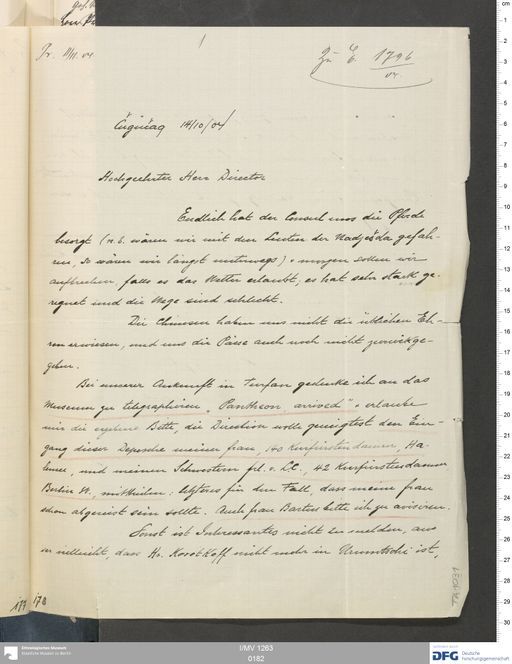 Zu E. 1796/04.
Čugučaq 14/10/04
Hochgeehrter Herr Director
Endlich hat der Consul uns die Pferde
besorgt (n.b. wären wir mit den Leuten der Nadježda gefah-
ren, so wären wir längst unterwegs) & morgen sollen wir
aufbrechen, falls es das Wetter erlaubt; es hat sehr stark ge-
regnet und die Wege sind schlecht.
Die Chinesen haben uns nicht die üblichen Eh-
ren erwiesen, und uns die Pässe auch noch nicht zurückge-
geben.
Bei unserer Ankunft in Turfan gedenke ich an das
Museum zu telegraphieren „Pantheon arrived" & erlaube
mir die ergebene Bitte, die Direction wolle geneigtest den Ein-
gang dieser Depesche meiner Frau, 140 Kurfürstendamm, Ha-
lensee, und meinen Schwestern frl. v. LC., 42 Kurfürstendamm
Berlin W., mittheilen: letzteres für den Fall, dass meine Frau
schon abgereist sein sollte. Auch frau Bartus bitte ich zu avisiren.
Sonst ist Interessantes nicht zu melden, aus
er vielleicht, dass Hr. Korotkoff nicht mehr in Urumtschi ist,
177 178
TA 1031
Ethnologisches Museum
Staatliche Museen zu Berlin
I/MV 1263
0182
DFG Deutsche
Forschungsgemeinschaft